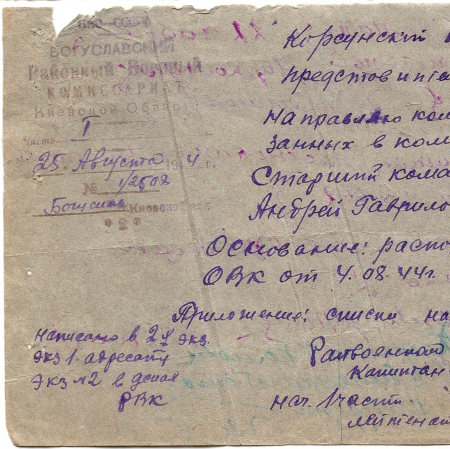 НКО-СССР
БОГУСЛАВСКИЙ
Районный Военный
КОМИССАРИАТ
Киевской Област
Часть I
25. Августа 194 4
№ 1/2508
Богуслав Киевской
* 2 *
Корсунский
Направляю ком
занных в ком
Старший кома
Андрей Гаврило
Основание: распо
ОВК от 4.08.44г.
Приложение: списки на
Написано в 2х экз.
экз 1. адресату
экз №2 в дела
РВК
Райвоенком
Капитан
нач. 1 части
лейтенант